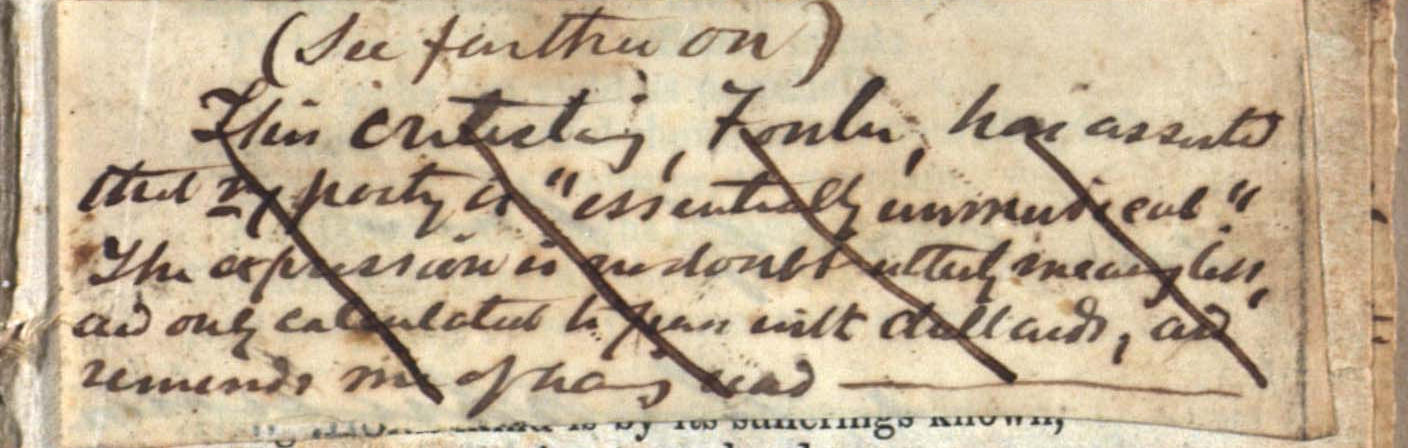 (See further on)
This criticling, Fowler, has asserted
that my poetry is "essentially unmusical".
The expression is no doubt utterly meaningless,
and only calculated to pass with dullards, and
remends me of having read ———
is by its sufferings known,